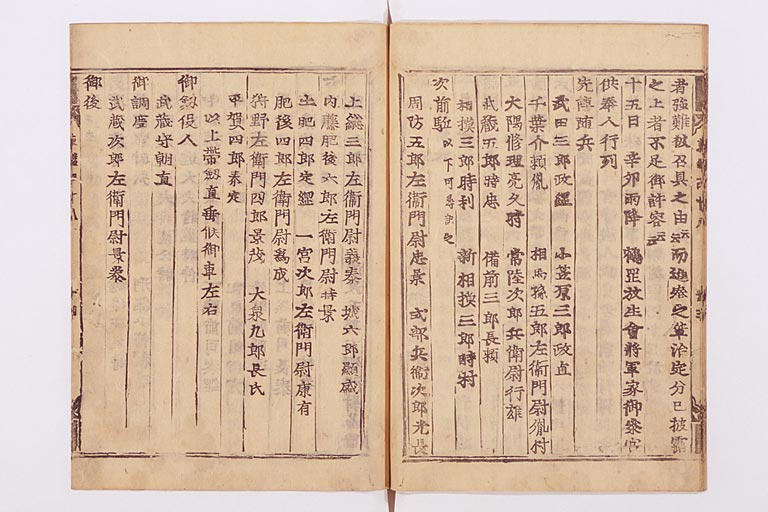 者強難被召具之由云云而進發之輩治定分已披露
之上者不足御許容云云
十五日 辛卯雨降 鶴岡放生會將軍家御參宮
供奉人行列
先陣隨兵
武田三郎政綱 小笠原三郎政直
千葉介頼胤 相馬孫五郎左衛門尉胤村
大隅修理亮久時 常陸次郎兵衛尉行雄
武藏五郎時忠 備前三郎長頼
相摸三郎時利 新相摸三郎時村
次前駈 以下可尋記之
周防五郎左衛門尉忠景 式部兵衛次郎光長
上総三郎左衛門尉義泰 城六郎顯盛
内藤肥後六郎左衛門尉時景
土肥四郎定經 一宮次郎左衛門尉康有
肥後四郎左衛門尉為成
狩野左衛門四郎景茂 大泉九郎長氏
平賀四郎泰定
以上帶劔直垂候御車左右
御劔役人
武藏守朝直
御調度
武藏次郎左衛門尉景泰
御後